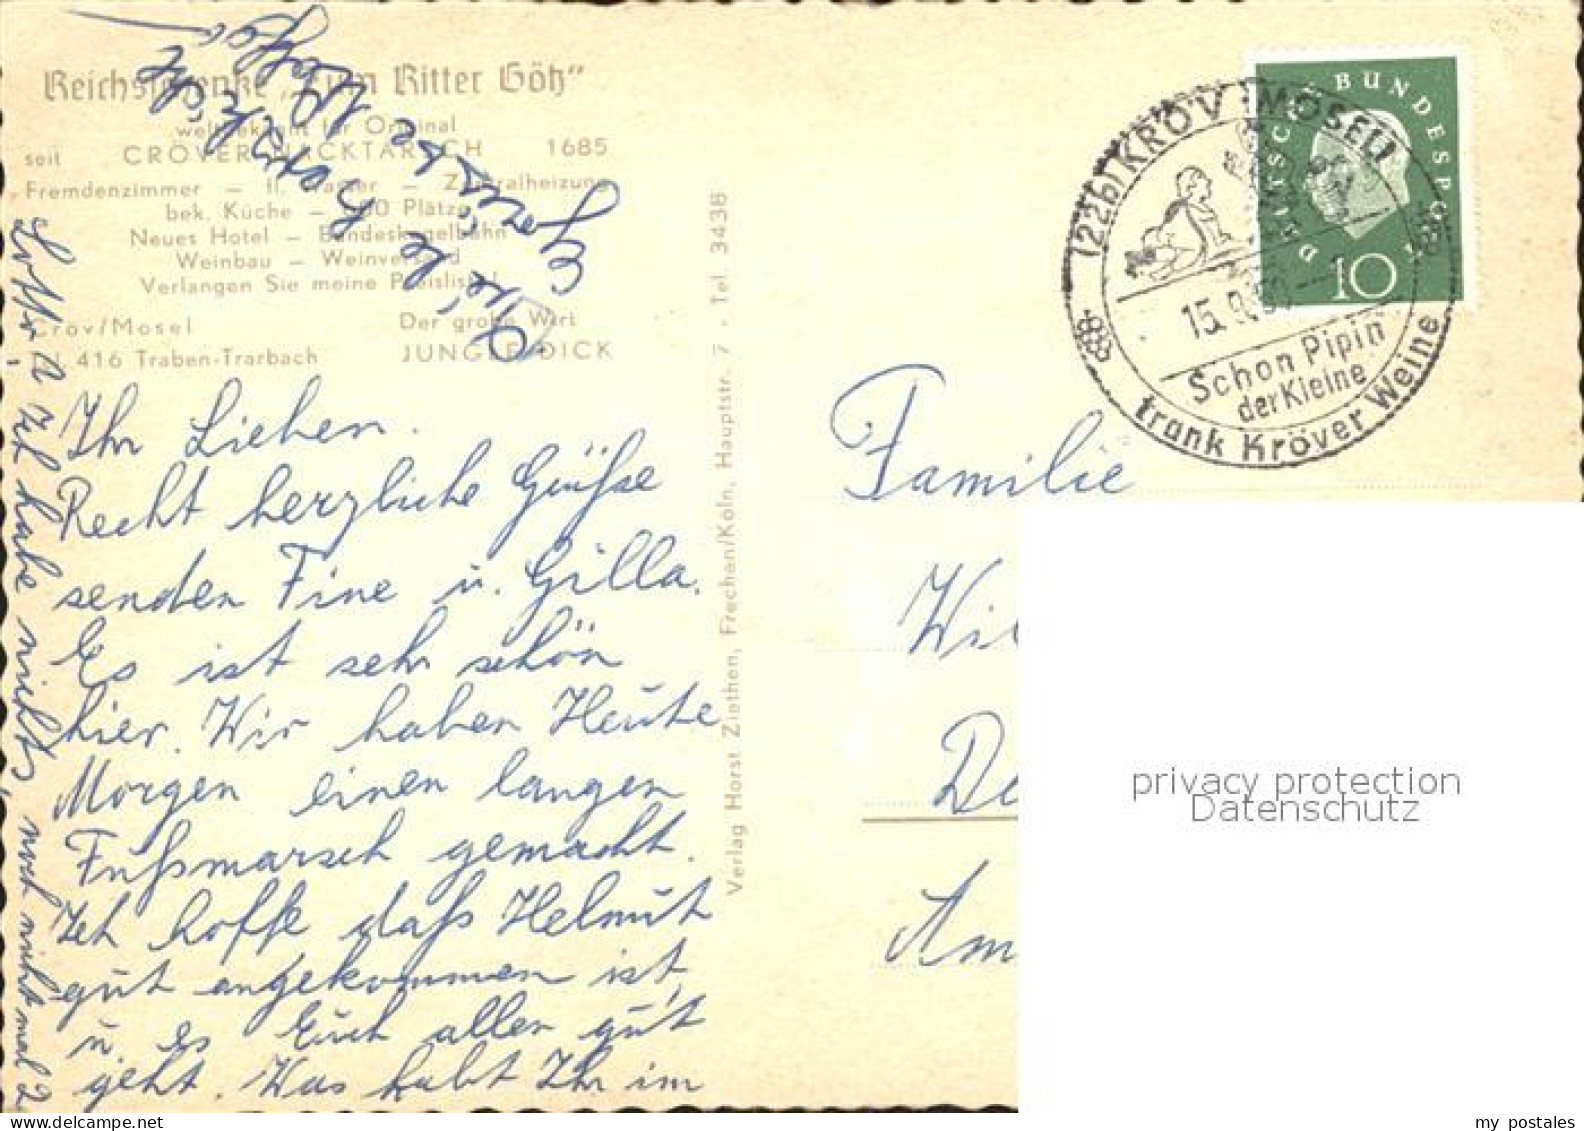 Reichsschenke „Zum Ritter Götz"
weltbekannt für Original
seit CRÖVER NACKTARSCH 1685
Fremdenzimmer — fl. Wasser — Zentralheizung
bek. Küche — 300 Plätze
Neues Hotel — Bundeskegelbahn
Weinbau — Weinversand
Verlangen Sie meine Preisliste!
Cröv/Mosel
Der große Wirt
416 Traben-Trarbach
JUNGLE DICK
Ihr Lieben.
Recht herzliche Grüße
senden Fine u. Gilla.
Es ist sehr schön
hier. Wir haben Heute
Morgen einen langen
Fußmarsch gemacht.
Ich hoffe daß Helmut
gut angekommen ist,
u. es Euch allen gut
geht. Was habt Ihr im
Lotto, Ich habe nichts, noch nicht mal 2
Verlag Horst Ziethen, Frechen/Köln, Hauptstr. 7 . Tel. 3438
(22b) KRÖV (MOSEL)
15.9.
Schon Pipin
der Kleine
trank Kröver Weine
DEUTSCHE BUNDESPOST
10
Familie
Wi
De
Am
privacy protection
Datenschutz
my postales